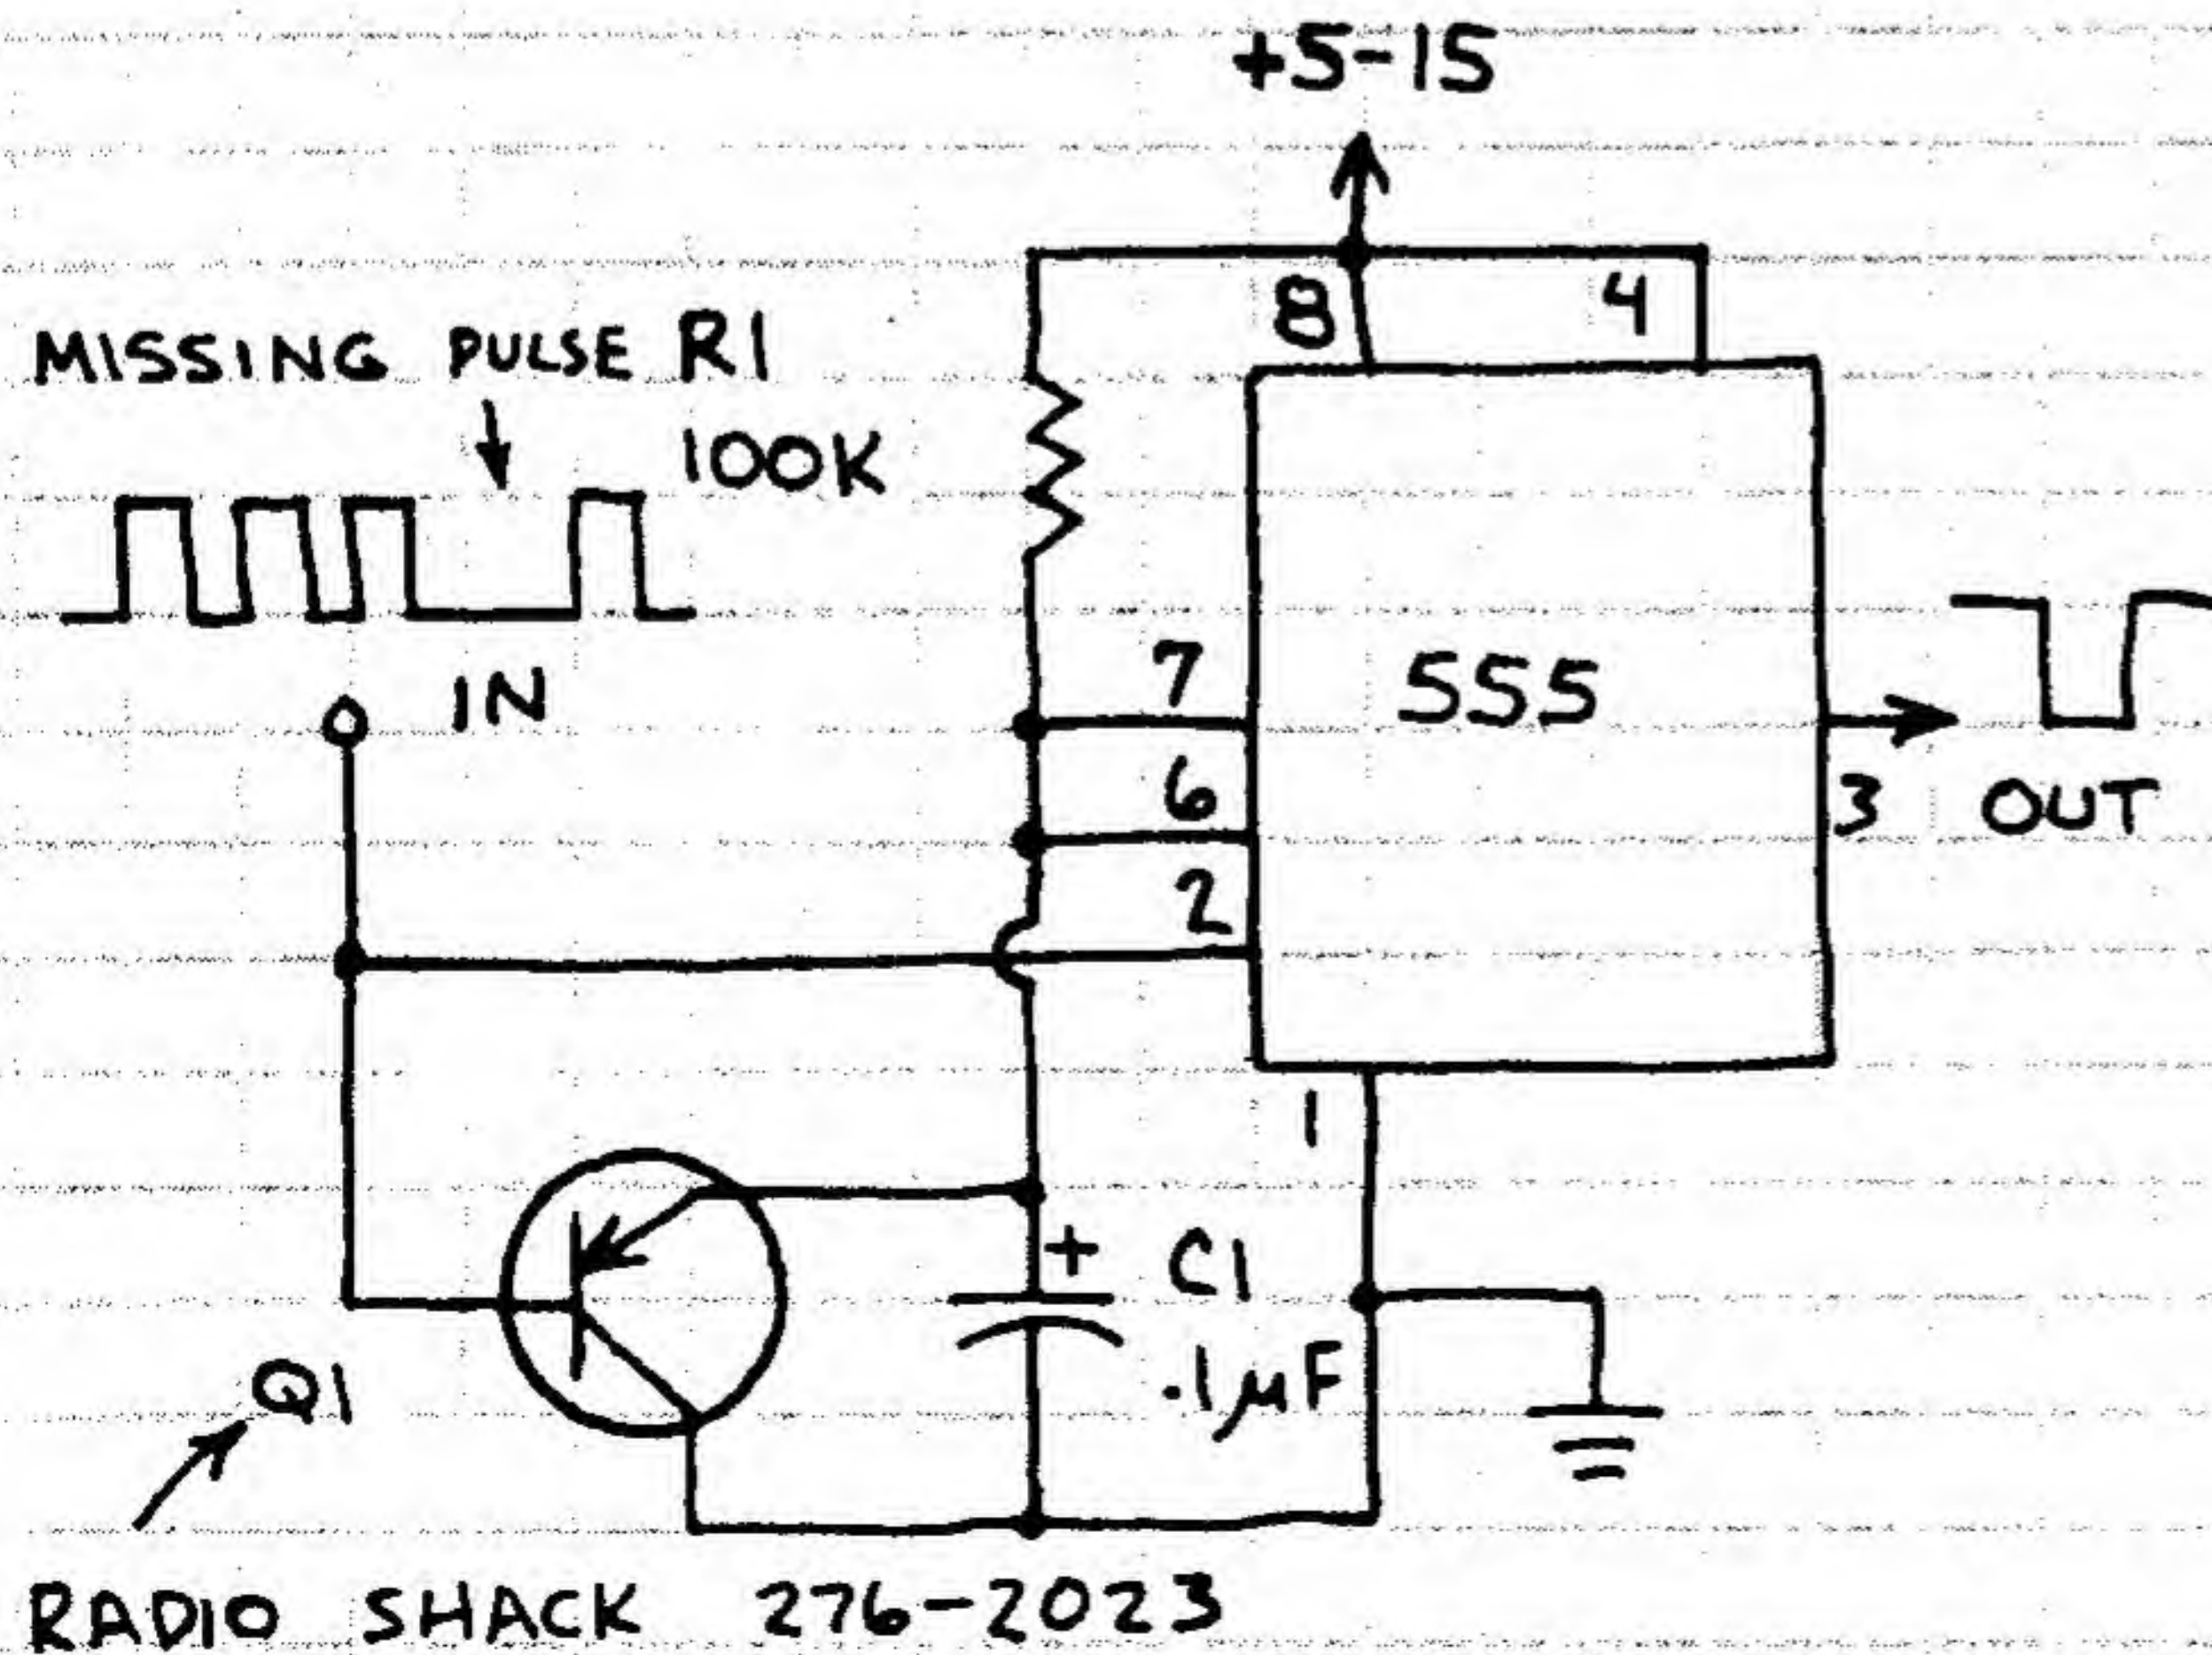 +5-15
8
4
MISSING PULSE
R1
100K
IN
7
6
2
555
3
OUT
1
+
C1
.1µF
Q1
RADIO SHACK 276-2023